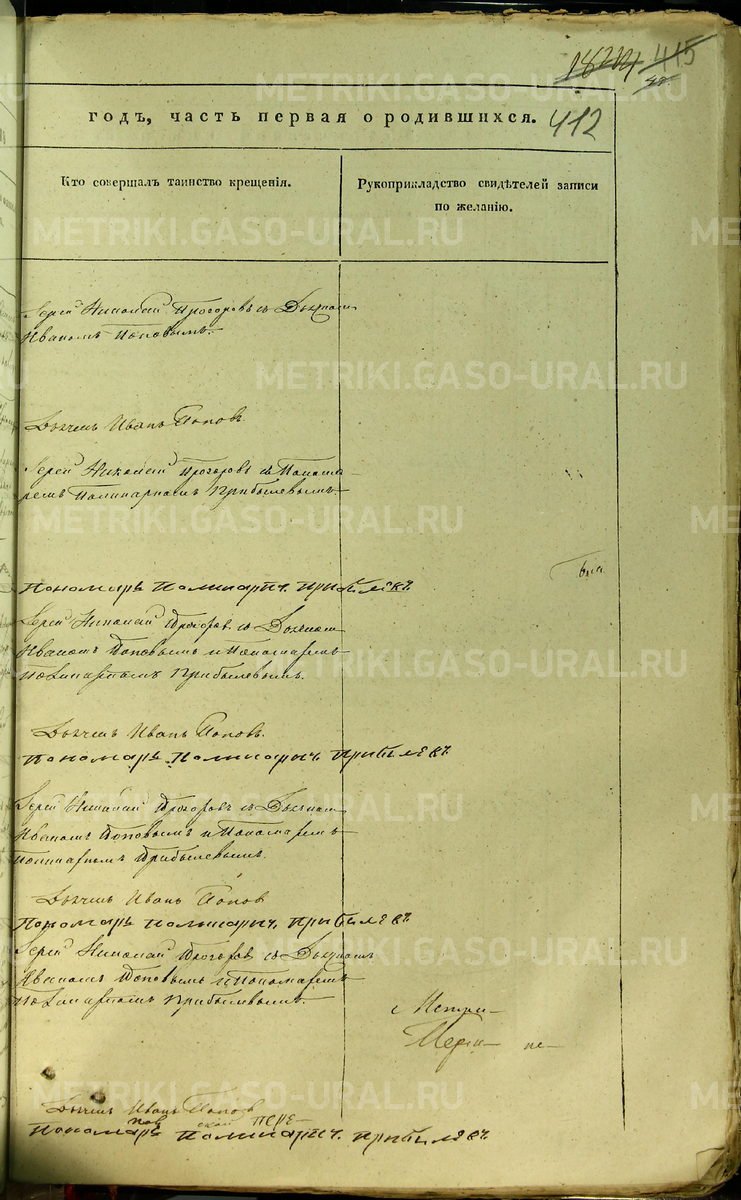 METRIKI.GASO-URAL.RU
415
412
годъ, часть первая о родившихся.
Кто совершалъ таинство крещенія.
Рукоприкладство свидѣтелей записи
по желанію.
Іерей Николай Прозоровъ съ Дьячкомъ
Иваномъ Поповымъ.
Дьячекъ Иванъ Поповъ
Іерей Николай Прозоровъ съ Понома-
ремъ Поликарпомъ Прибылевымъ
Пономарь Поликарпъ Прибылевъ
Іерей Николай Прозоровъ съ Дьячкомъ
Иваномъ Поповымъ и Пономаремъ
Поликарпомъ Прибылевымъ.
Дьячекъ Иванъ Поповъ.
Пономарь Поликарпъ Прибылевъ
Іерей Николай Прозоровъ съ Дьячкомъ
Иваномъ Поповымъ и Пономаремъ
Поликарпомъ Прибылевымъ.
Дьячекъ Иванъ Поповъ
Пономарь Поликарпъ Прибылевъ
Іерей Николай Прозоровъ съ Дьячкомъ
Иваномъ Поповымъ и Пономаремъ
Поликарпомъ Прибылевымъ.
Дьячекъ Иванъ Поповъ
Пономарь Поликарпъ Прибылевъ